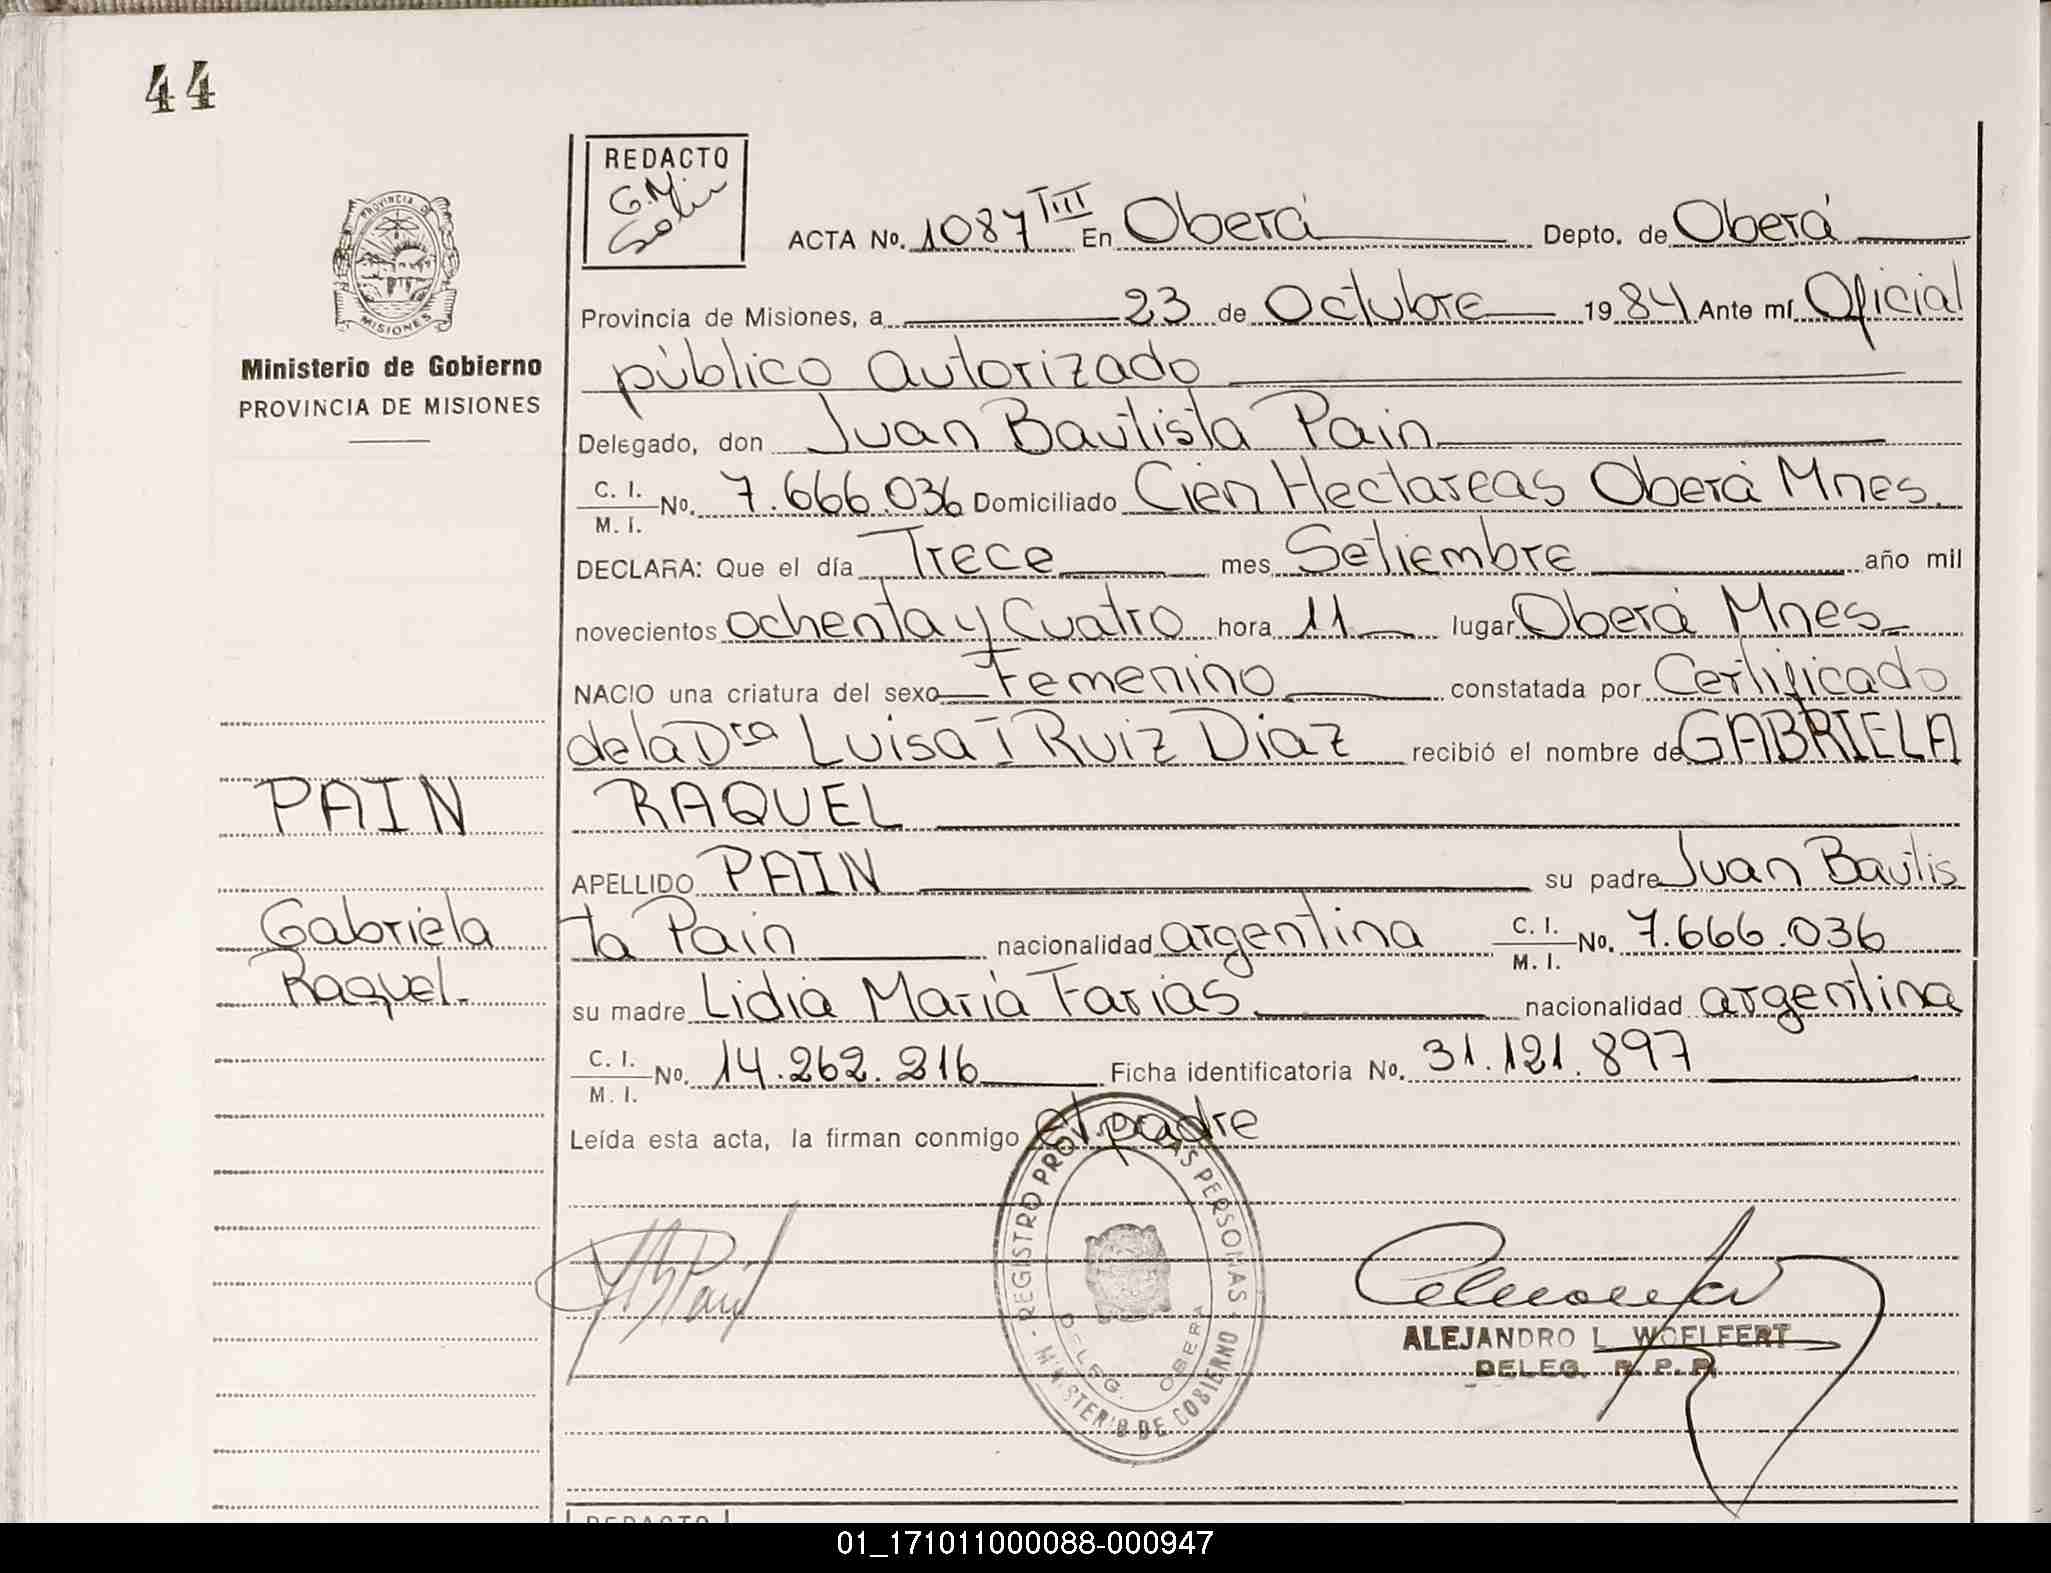 44
REDACTO
PROVINCIA DE
MISIONES
Ministerio de Gobierno
PROVINCIA DE MISIONES
ACTA No. 1087 TIII En Oberá Depto. de Oberá
Provincia de Misiones, a 23 de Octubre 1984 Ante mí Oficial
público autorizado
Delegado, don Juan Bautista Pain
C. I. / M. I. No. 7.666.036 Domiciliado Cien Hectareas Oberá Mnes.
DECLARA: Que el día Trece mes Setiembre año mil
novecientos ochenta y Cuatro hora 11 lugar Oberá Mnes
NACIO una criatura del sexo Femenino constatada por Certificado
de la Dra Luisa I Ruiz Diaz recibió el nombre de GABRIELA
RAQUEL
APELLIDO PAIN su padre Juan Bautis
ta Pain nacionalidad argentina C. I. / M. I. No. 7.666.036
su madre Lidia María Farias nacionalidad argentina
C. I. / M. I. No. 14.262.216 Ficha identificatoria No. 31.121.897
Leída esta acta, la firman conmigo el padre
PAIN
Gabriela
Raquel.
REGISTRO PROV. DE LAS PERSONAS
MINISTERIO DE GOBIERNO
DELEG. OBERA
ALEJANDRO L. WOELFERT
DELEG. R. P. P.
REDACTO
01_171011000088-000947